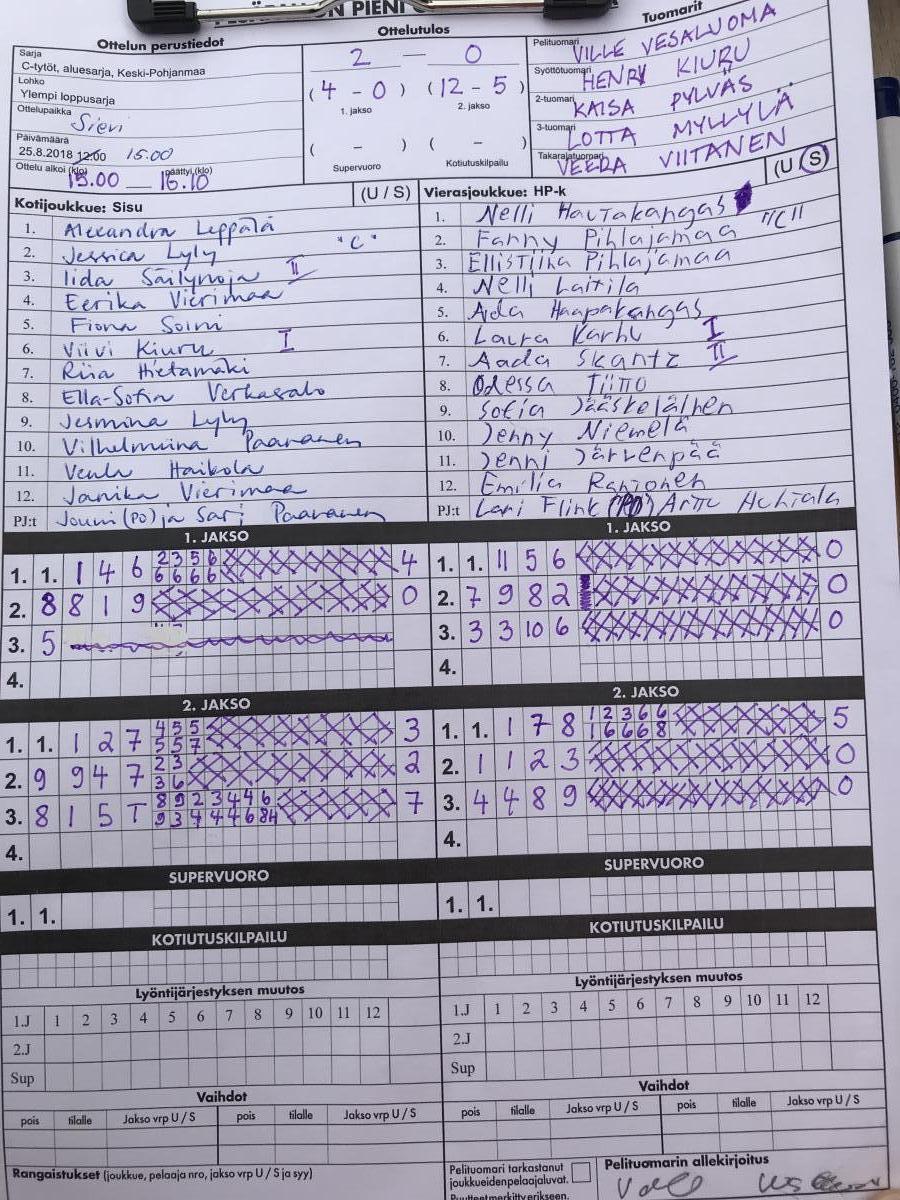 PIENI
Ottelun perustiedot
Sarja
C-tytöt, aluesarja, Keski-Pohjanmaa
Lohko
Ylempi loppusarja
Ottelupaikka
Sievi
Päivämäärä
25.8.2018 12:00 15.00
Ottelu alkoi (klo) päättyi (klo)
15.00 — 16.10
Ottelutulos
2 — 0
(4 - 0) (12 - 5)
1. jakso 2. jakso
( - ) ( - )
Supervuoro Kotiutuskilpailu
Tuomarit
Pelituomari VILLE VESALUOMA
Syöttötuomari HENRY KIURU
2-tuomari KAISA PYLVÄS
3-tuomari LOTTA MYLLYLÄ
Takarajatuomari VEERA VIITANEN
Kotijoukkue: Sisu (U / S)
1. Alexandra Leppälä
2. Jessica Lyly "C"
3. Iida Säilynoja II
4. Eerika Vierimaa
5. Fiona Soini
6. Viivi Kiuru I
7. Riia Hietamäki
8. Ella-Sofia Verkasalo
9. Jesmina Lyly
10. Vilhelmiina Paananen
11. Venla Haikola
12. Janika Vierimaa
PJ:t Jouni (PO) ja Sari Paananen
Vierasjoukkue: HP-k (U / S)
1. Nelli Hautakangas
2. Fanny Pihlajamaa "C"
3. Ellistiina Pihlajamaa
4. Nelli Laitila
5. Aida Haapakangas
6. Laura Karhu I
7. Aada Skantz II
8. Odessa Tiitto
9. Sofia Jääskeläinen
10. Jenny Niemelä
11. Jenni Järvenpää
12. Emilia Rantonen
PJ:t Lari Flink (PO) Arttu Huhtala
1. JAKSO
1. 1. 1 4 6 2 3 5 6 4
6 6 6 6
2. 8 8 1 9 0
3. 5
4.
1. JAKSO
1. 1. 11 5 6 0
2. 7 9 8 2 0
3. 3 3 10 6 0
4.
2. JAKSO
1. 1. 1 2 7 4 5 5 3
5 5 7
2. 9 9 4 7 2 3 2
3 6
3. 8 1 5 T 8 9 2 3 4 4 6 7
9 3 4 4 4 6 8
4.
2. JAKSO
1. 1. 1 7 8 1 2 3 6 6 5
1 6 6 6 8
2. 1 1 2 3 0
3. 4 4 8 9 0
4.
SUPERVUORO
1. 1.
SUPERVUORO
1. 1.
KOTIUTUSKILPAILU
KOTIUTUSKILPAILU
Lyöntijärjestyksen muutos
1.J 1 2 3 4 5 6 7 8 9 10 11 12
2.J
Sup
Lyöntijärjestyksen muutos
1.J 1 2 3 4 5 6 7 8 9 10 11 12
2.J
Sup
Vaihdot
pois tilalle Jakso vrp U / S pois tilalle Jakso vrp U / S
Vaihdot
pois tilalle Jakso vrp U / S pois tilalle Jakso vrp U / S
Rangaistukset (joukkue, pelaaja nro, jakso vrp U / S ja syy)
Pelituomari tarkastanut
joukkueidenpelaajaluvat.
Puutteet merkitty erikseen.
Pelituomarin allekirjoitus